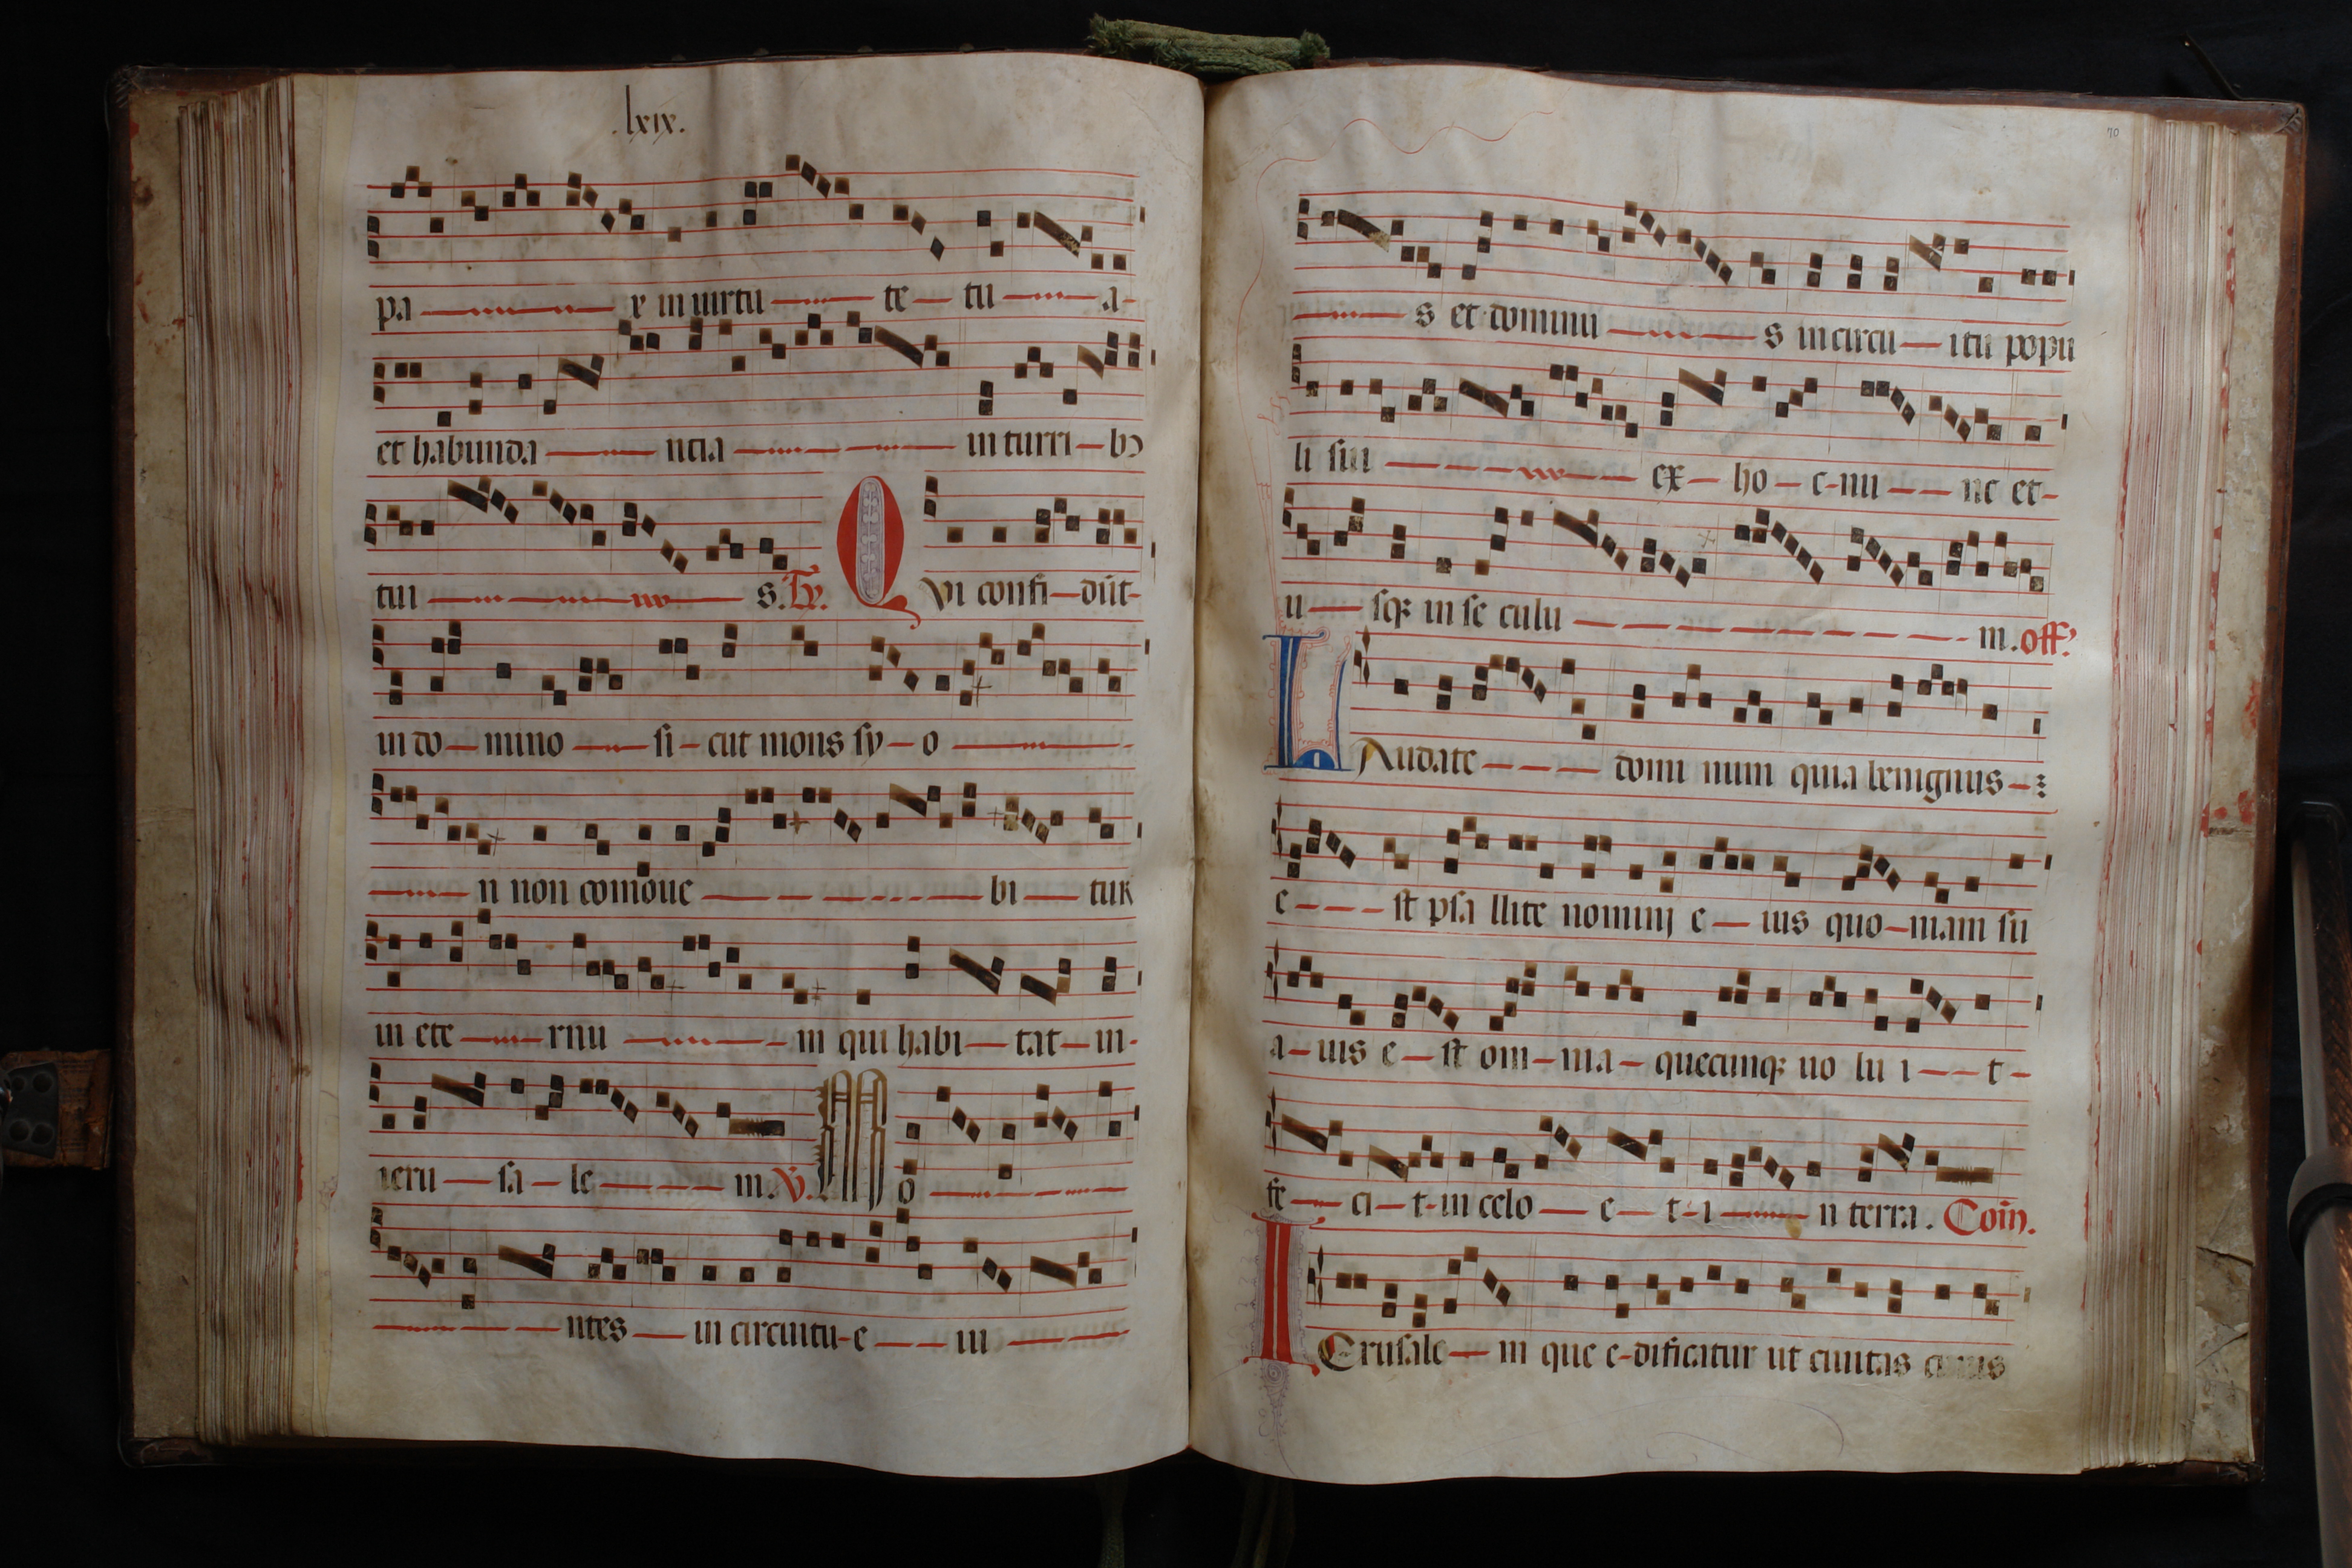 .lxix.
pa x in uirtu te tu a
et habunda ncia in turri bꝯ
tui s. Tꝶ. Qvi confi dūt
in do mino si cut mons sy o
n non comoue bi tur
in ete rnu m qui habi tat in
ieru sa le m. V. Mo
ntes in circuitu e iu
70
s et dominu s in circu itu popu
li sui ex ho c nu nc et
u sqꝫ in se culu m. off.
LAudate domi num quia benignus
e st psa llite nominj e ius quo niam su
a uis e st om nia quecunqꝫ uo lu i t
fe ci t in celo e t i n terra. Com.
IErusale m que e dificatur ut ciuitas cuius